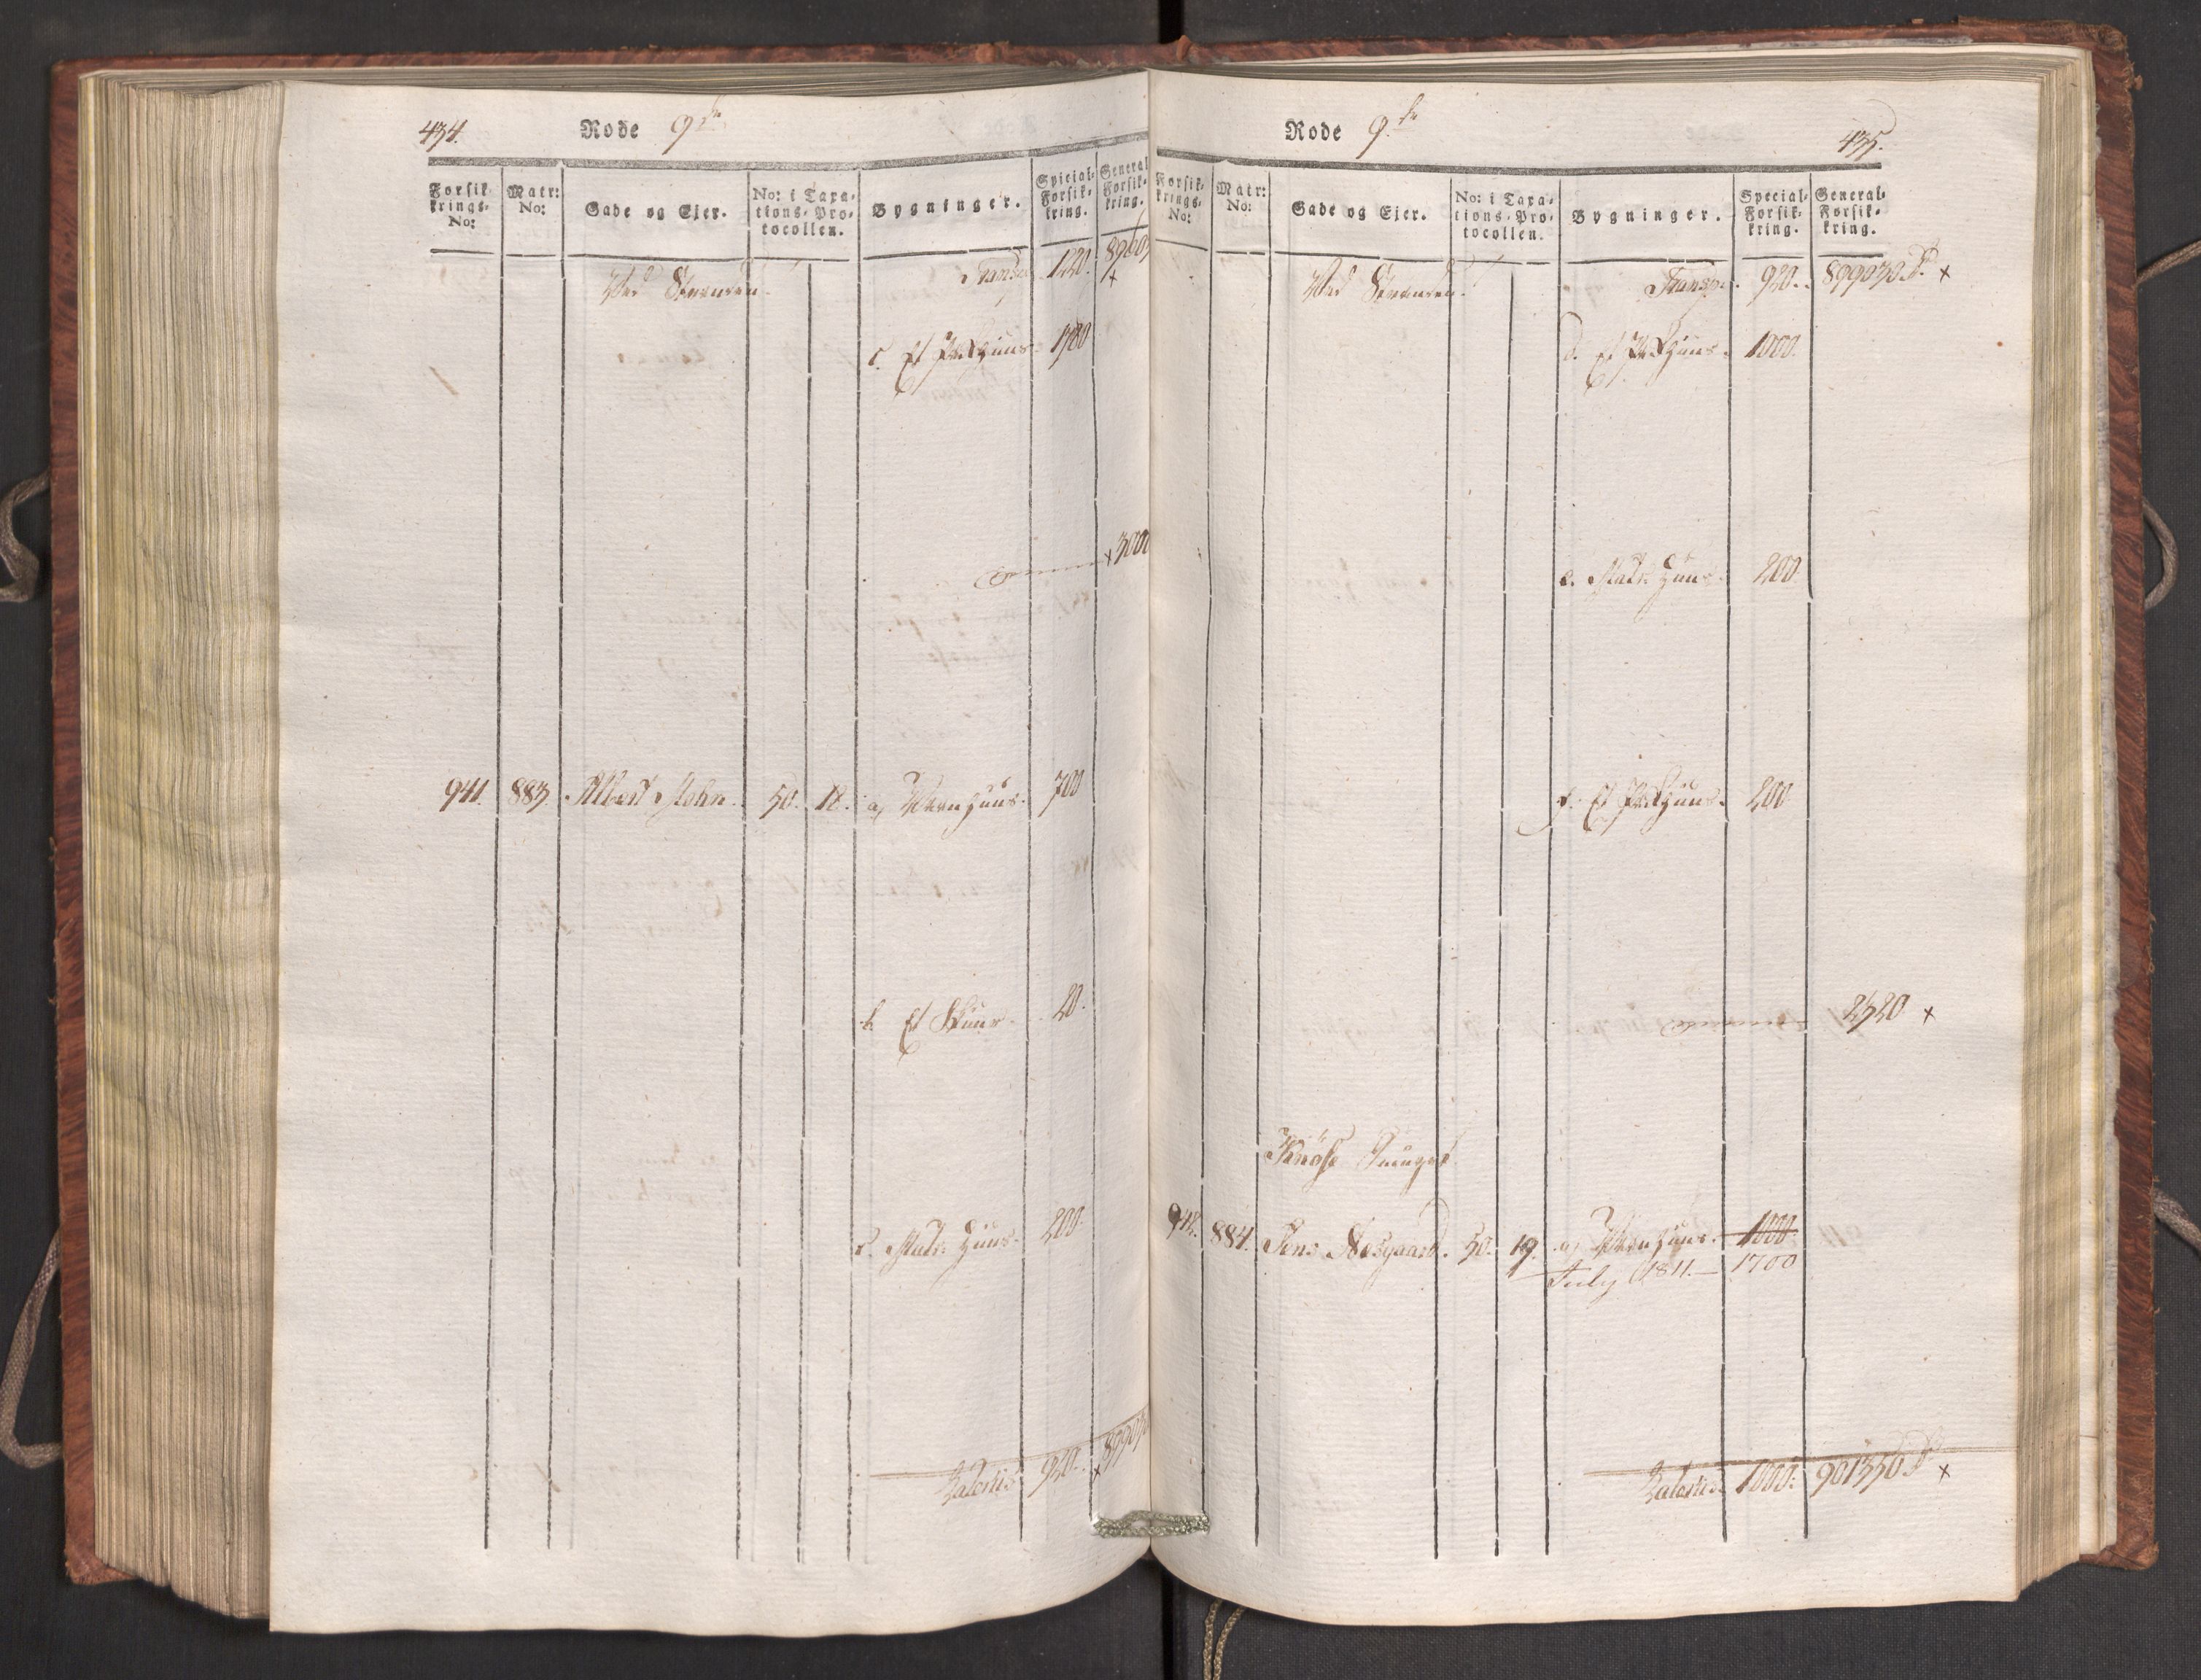 434.
Rode 9de
Forsik-
krings-
No:
Matr:
No:
Gade og Ejer.
No: i Taxa-
tions-Pro-
tocollen.
Bygninger.
Special-
Forsik-
kring.
General
Forsik-
kring.
Ved Stranden.
Transp. 120.
c. Et Pakhuus. 1780
3000
941. 883. Albert Mohn. 50. 18. a, Vaanhuus. 700
b. Et Skuur. 20.
c. Mads. Huus. 200.
Lateris 920. 89903
Rode 9de
435.
Forsik-
krings-
No:
Matr:
No:
Gade og Ejer.
No: i Taxa-
tions-Pro-
tocollen.
Bygninger.
Special-
Forsik-
kring.
General-
Forsik-
kring.
Ved Stranden.
Transp. 920. 899030.
d. Et Pakhuus. 1000.
e. Mads. Huus. 200.
f. Et Pakhuus. 200
2320
Knøse Smuget
942. 884. Jens 50. 19. a, Vaanhuus. 1000.
July 1811. 1700
Lateris. 1000. 901350